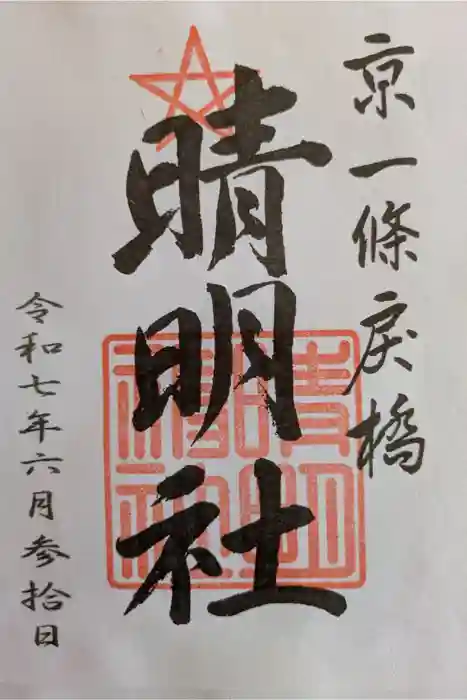 京一條戻橋
晴明社
令和七年六月参拾日
晴明
神社